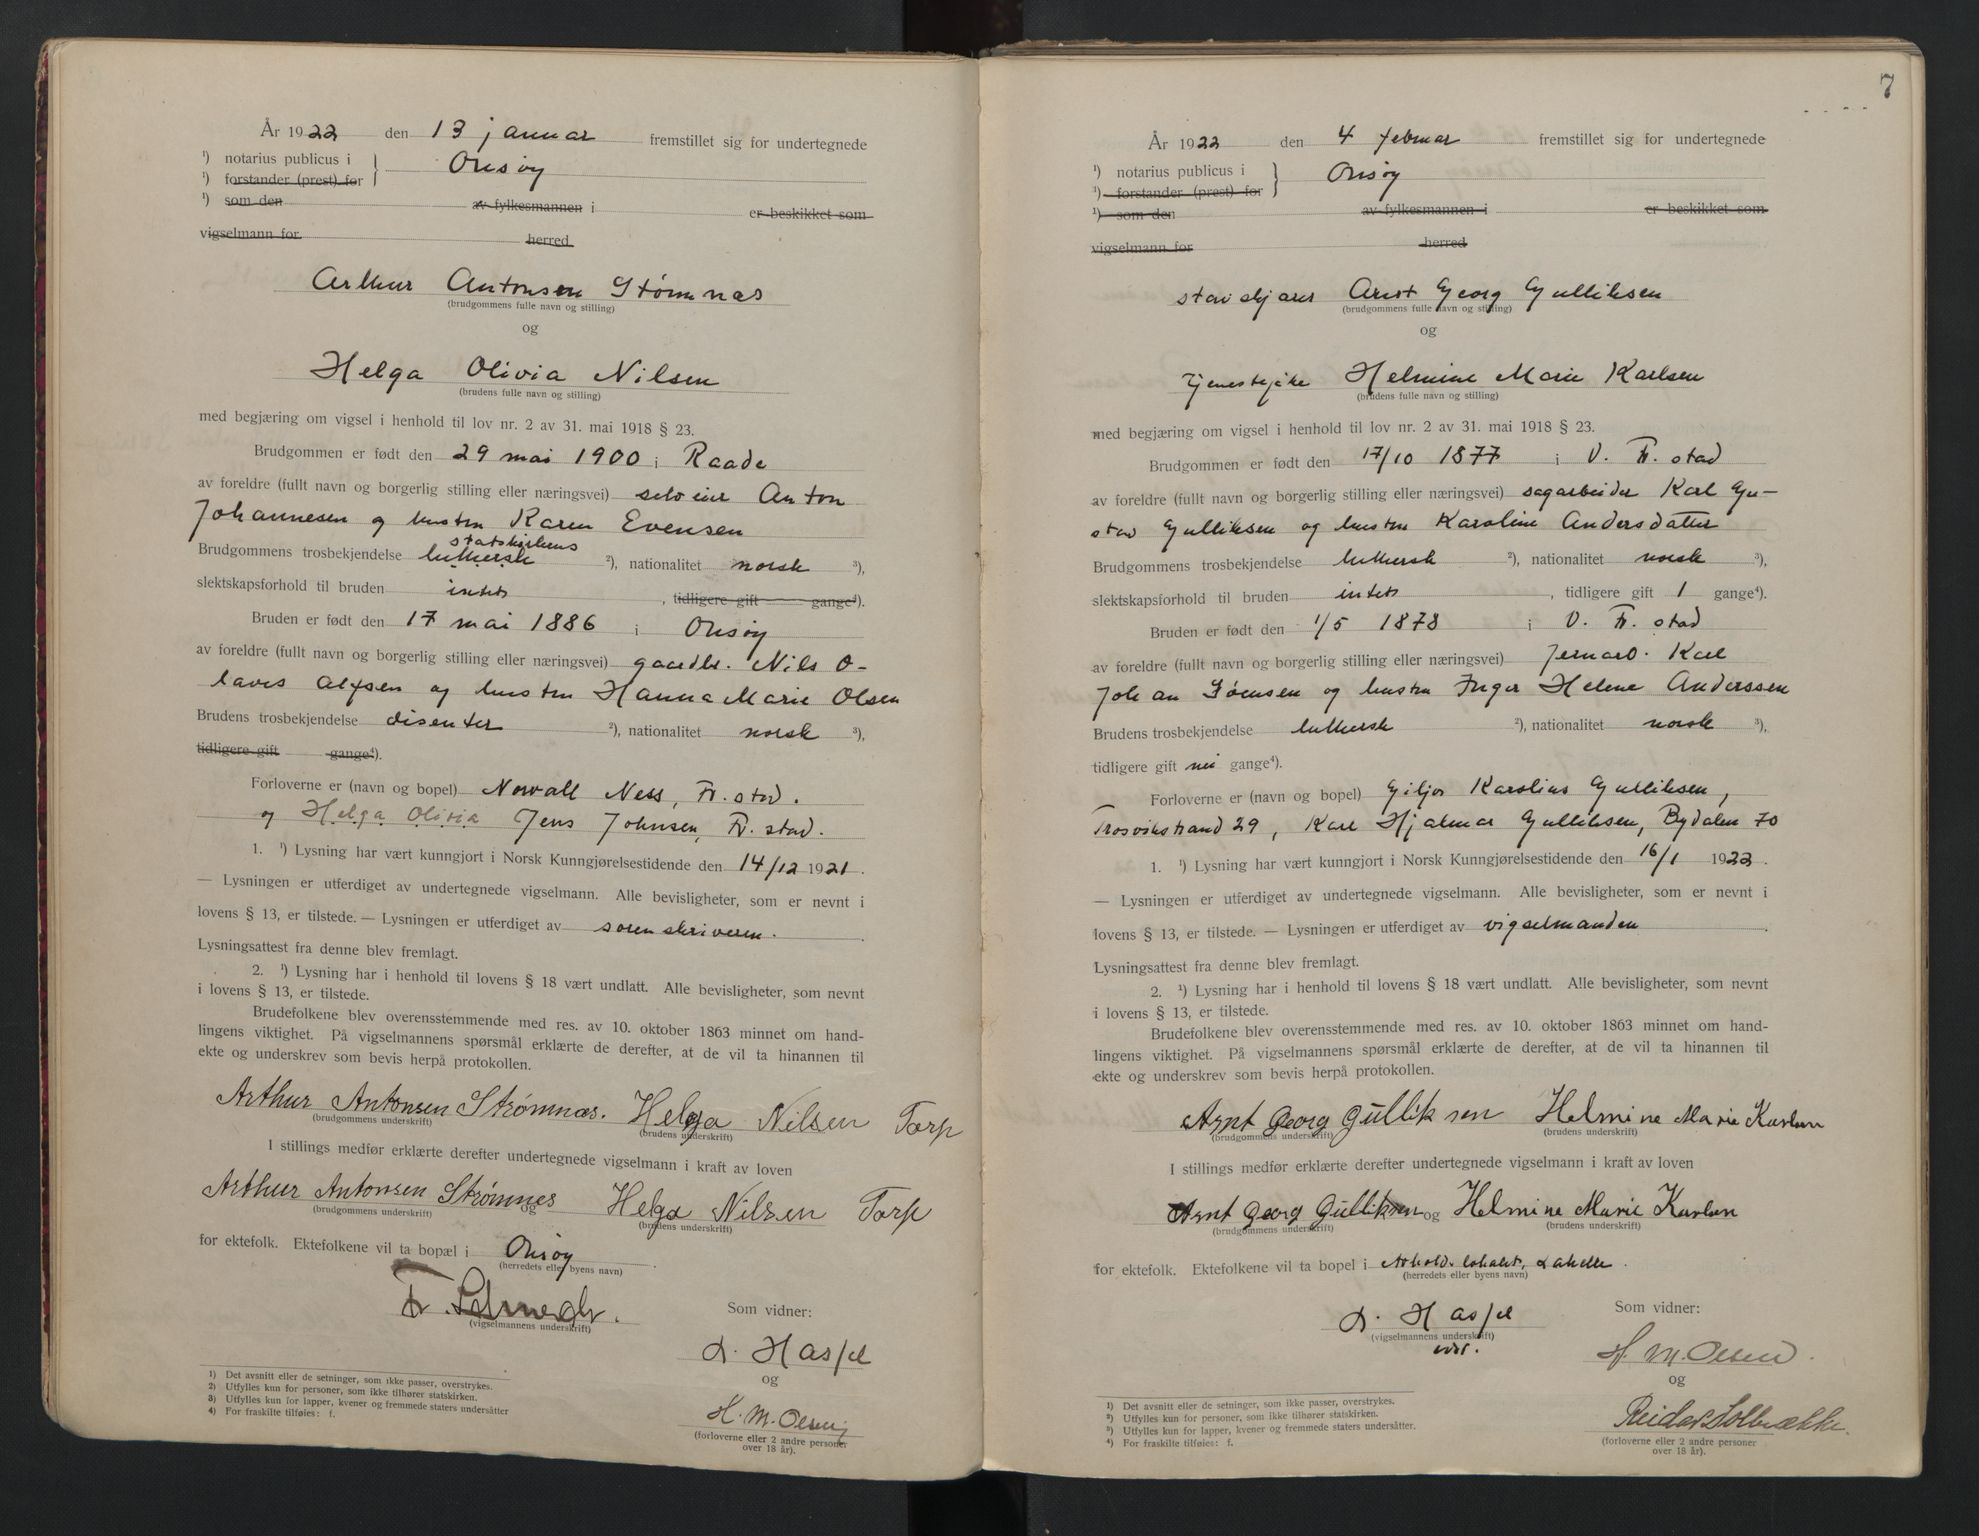 År 1922 den 13 januar fremstillet sig for undertegnede
¹) notarius publicus i } Onsøy
¹) forstander (prest) for
¹) som den av fylkesmannen i er beskikket som
vigselmann for herred
Arthur Antonsen Stømnas
(brudgommens fulle navn og stilling)
og
Helga Olivia Nilsen
(brudens fulle navn og stilling)
med begjæring om vigsel i henhold til lov nr. 2 av 31. mai 1918 § 23.
Brudgommen er født den 29 mai 1900 i Raade
av foreldre (fullt navn og borgerlig stilling eller næringsvei) selveier Anton
Johannesen og hustru Karen Evensen
statskirkens
Brudgommens trosbekjendelse luthersk ²), nationalitet norsk ³),
slektskapsforhold til bruden intet , tidligere gift gange⁴).
Bruden er født den 17 mai 1886 i Onsøy
av foreldre (fullt navn og borgerlig stilling eller næringsvei) gaardbr. Nils O-
laves Alfsen og hustru Hanna Marie Olsen
Brudens trosbekjendelse disenter ²), nationalitet norsk ³),
tidligere gift gange⁴).
Forloverne er (navn og bopel) Norvall Ness, Fr.stad.
og Helga Olivia Jens Johnsen, Fr. stad.
1. ¹) Lysning har vært kunngjort i Norsk Kunngjørelsestidende den 14/12 1921.
— Lysningen er utferdiget av undertegnede vigselmann. Alle bevisligheter, som er nevnt i
lovens § 13, er tilstede. — Lysningen er utferdiget av sorenskriveren.
Lysningsattest fra denne blev fremlagt.
2. ¹) Lysning har i henhold til lovens § 18 vært undlatt. Alle bevisligheter, som nevnt
i lovens § 13, er tilstede.
Brudefolkene blev overensstemmende med res. av 10. oktober 1863 minnet om hand-
lingens viktighet. På vigselmannens spørsmål erklærte de derefter, at de vil ta hinannen til
ekte og underskrev som bevis herpå protokollen.
Arthur Antonsen Strømnæs. Helga Nilsen Torp
(brudgommens underskrift) (brudens underskrift)
I stillings medfør erklærte derefter undertegnede vigselmann i kraft av loven
Arthur Antonsen Strømnes og Helga Nilsen Torp
(brudgommens underskrift) (brudens underskrift)
for ektefolk. Ektefolkene vil ta bopæl i Onsøy
(herredets eller byens navn)
(vigselmannens underskrift)
Som vidner:
D. Hassel
og
H. M. Olsen
(forloverne eller 2 andre personer
over 18 år).
¹) Det avsnitt eller de setninger, som ikke passer, overstrykes.
²) Utfylles kun for personer, som ikke tilhører statskirken.
³) Utfylles kun for lapper, kvener og fremmede staters undersåtter
⁴) For fraskilte tilføies: f.
7
År 1922 den 4 februar fremstillet sig for undertegnede
¹) notarius publicus i } Onsøy
¹) forstander (prest) for
¹) som den av fylkesmannen i er beskikket som
vigselmann for herred
Arnt Georg Gulliksen
(brudgommens fulle navn og stilling)
og
Tjenestepike Helmine Marie Karlsen
(brudens fulle navn og stilling)
med begjæring om vigsel i henhold til lov nr. 2 av 31. mai 1918 § 23.
Brudgommen er født den 17/10 1877 i V. Fr. stad
av foreldre (fullt navn og borgerlig stilling eller næringsvei) sagarbeider Karl Gu-
stav Gulliksen og hustru Karoline Andersdatter
Brudgommens trosbekjendelse luthersk ²), nationalitet norsk ³),
slektskapsforhold til bruden intet , tidligere gift 1 gange⁴).
Bruden er født den 1/5 1878 i V. Fr. stad
av foreldre (fullt navn og borgerlig stilling eller næringsvei) Jernarb. Karl
Johan Sørensen og hustru Inger Helene Anderssen
Brudens trosbekjendelse luthersk ²), nationalitet norsk ³),
tidligere gift nei gange⁴).
Forloverne er (navn og bopel) Giljer Karolius Gulliksen,
Trosvikstrand 29, Karl Hjalmar Gulliksen, Bydalen 70
1. ¹) Lysning har vært kunngjort i Norsk Kunngjørelsestidende den 16/1 1922.
— Lysningen er utferdiget av undertegnede vigselmann. Alle bevisligheter, som er nevnt i
lovens § 13, er tilstede. — Lysningen er utferdiget av vigselmanden.
Lysningsattest fra denne blev fremlagt.
2. ¹) Lysning har i henhold til lovens § 18 vært undlatt. Alle bevisligheter, som nevnt
i lovens § 13, er tilstede.
Brudefolkene blev overensstemmende med res. av 10. oktober 1863 minnet om hand-
lingens viktighet. På vigselmannens spørsmål erklærte de derefter, at de vil ta hinannen til
ekte og underskrev som bevis herpå protokollen.
Arnt Georg Gulliksen Helmine Marie Karlsen
(brudgommens underskrift) (brudens underskrift)
I stillings medfør erklærte derefter undertegnede vigselmann i kraft av loven
Arnt Georg Gulliksen og Helmine Marie Karlsen
(brudgommens underskrift) (brudens underskrift)
for ektefolk. Ektefolkene vil ta bopel i Lahelle.
(herredets eller byens navn)
D. Hassel
(vigselmannens underskrift)
Som vidner:
H. M. Olsen.
og
Reidar Solbrække.
(forloverne eller 2 andre personer
over 18 år).
¹) Det avsnitt eller de setninger, som ikke passer, overstrykes.
²) Utfylles kun for personer, som ikke tilhører statskirken.
³) Utfylles kun for lapper, kvener og fremmede staters undersåtter.
⁴) For fraskilte tilføies: f.